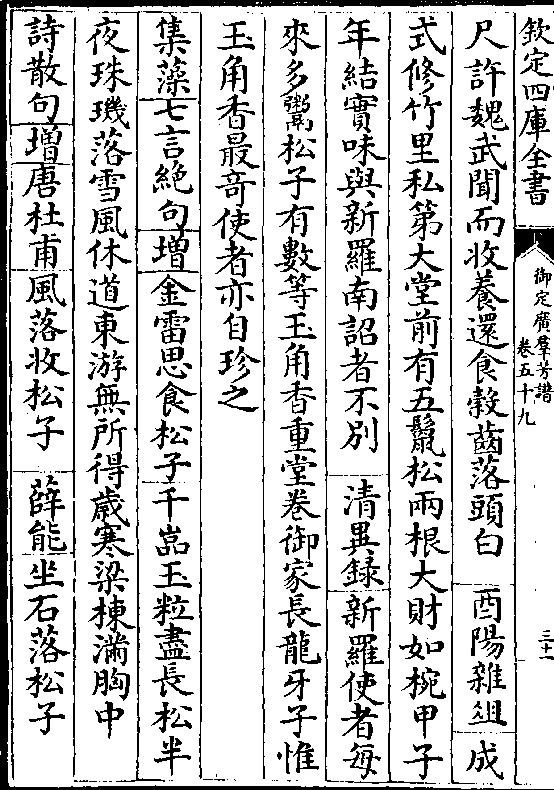 欽定四庫全書
御定廣羣芳譜
卷五十九
三十一
尺許魏武聞而收養還食榖齒落頭白 酉陽雜俎 成
式修竹里私第大堂前有五鬛松兩根大財如椀甲子
年結實味與新羅南詔者不别 清異錄 新羅使者每
來多鬻松子有數等玉角香重堂巻御家長龍牙子惟
玉角香最竒使者亦自珍之
集藻 七言絶句 增 金雷思食松子 千嵓玉粒盡長松半
夜珠璣落雪風休道東游無所得歲寒梁棟滿胸中
詩散句 增 唐杜甫風落收松子 薛能坐石落松子